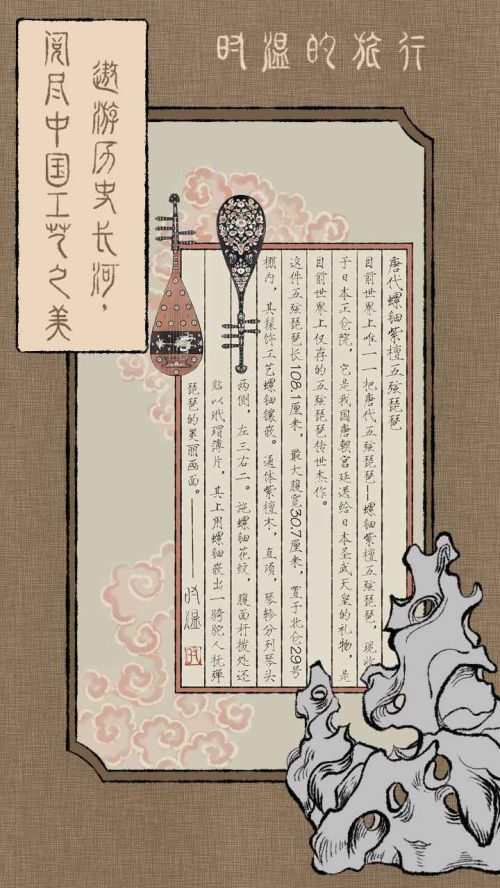 时温的旅行
遨游历史长河，
阅尽中国工艺之美
唐代螺钿紫檀五弦琵琶
目前世界上唯一一把唐代五弦琵琶—螺钿紫檀五弦琵琶，现收
于日本正仓院，它是我国唐朝宫廷送给日本圣武天皇的礼物，是
目前世界上仅存的五弦琵琶传世杰作。
这件五弦琵琶长108.1厘米，最大腹宽30.7厘米，置于北仓29号
棚内，其髹饰工艺螺钿镶嵌。通体紫檀木，直项，琴轸分列琴头
两侧，左三右二。施螺钿花纹，腹面杆拨处还
贴以玳瑁薄片，其上用螺钿嵌出一骑驼人抚弹
琵琶的美丽画面。——时温